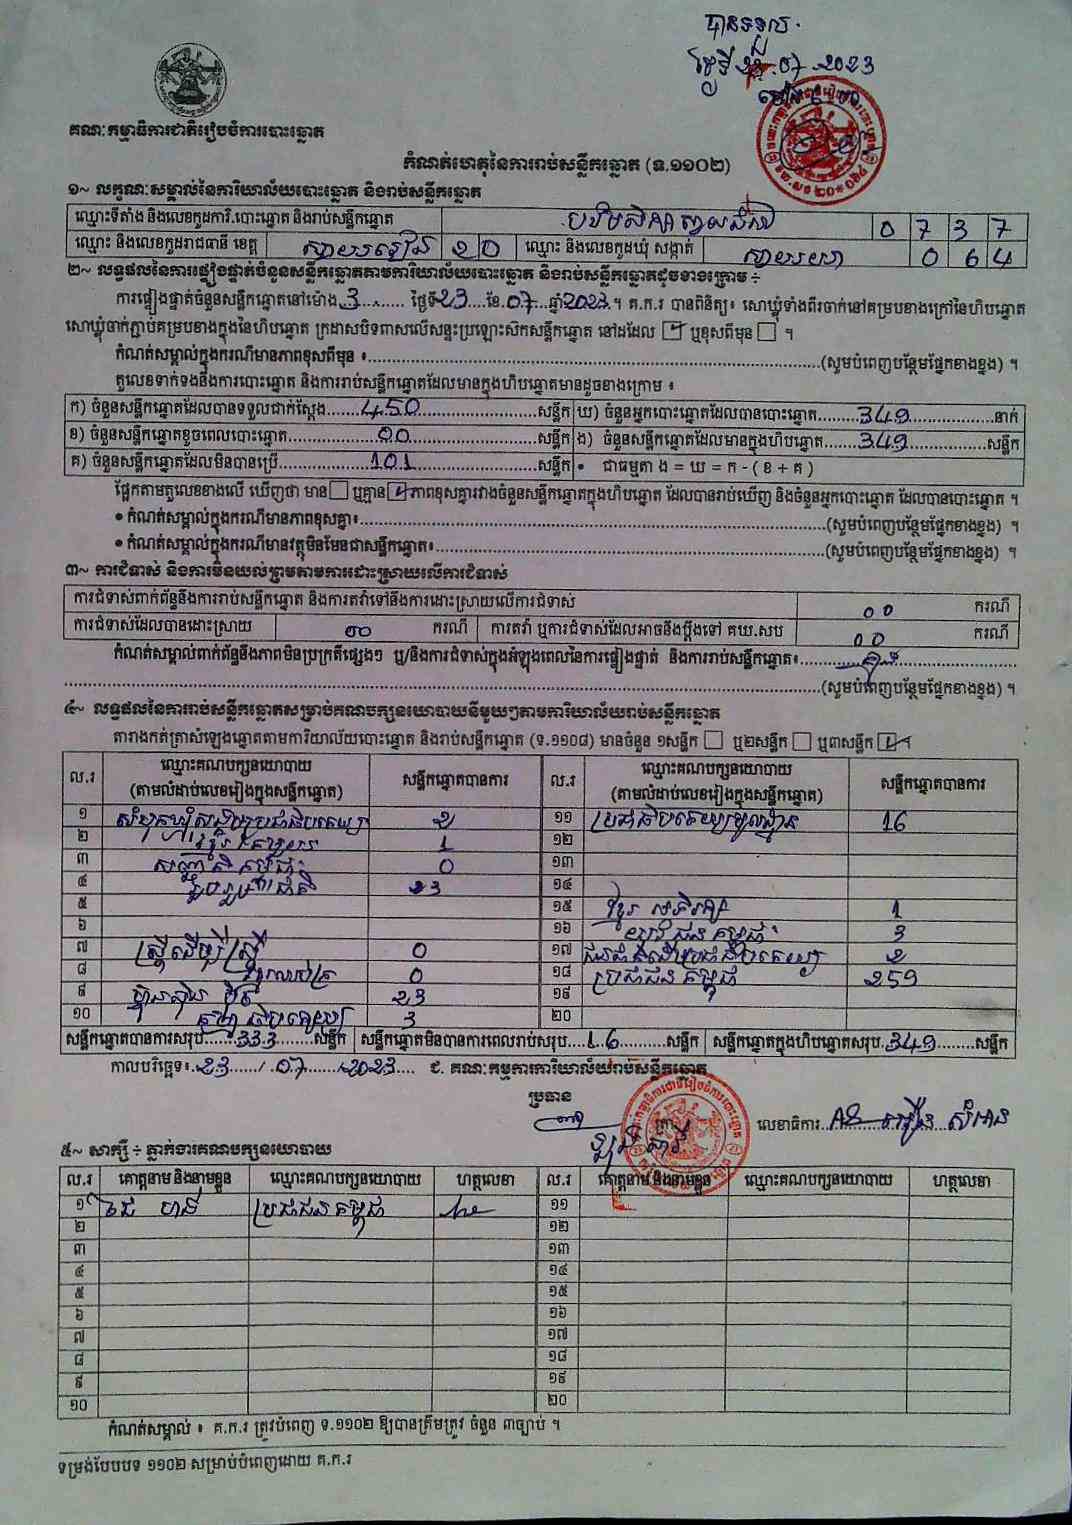 បានទទួល
ថ្ងៃទី 23.07.2023
គណៈកម្មាធិការជាតិរៀបចំការបោះឆ្នោត
កំណត់ហេតុនៃការរាប់សន្លឹកឆ្នោត (ទ.១១០២)
១~ លក្ខណៈសម្គាល់នៃការិយាល័យបោះឆ្នោត និងរាប់សន្លឹកឆ្នោត
ឈ្មោះទីតាំង និងលេខកូដការិ.បោះឆ្នោត និងរាប់សន្លឹកឆ្នោត 0 7 3 7
ឈ្មោះ និងលេខកូដរាជធានី ខេត្ត ស្វាយរៀង 2 0 ឈ្មោះ និងលេខកូដឃុំ សង្កាត់ ស្វាយយា 0 6 4
២~ លទ្ធផលនៃការផ្ទៀងផ្ទាត់ចំនួនសន្លឹកឆ្នោតតាមការិយាល័យបោះឆ្នោត និងរាប់សន្លឹកឆ្នោតដូចខាងក្រោម ÷
ការផ្ទៀងផ្ទាត់ចំនួនសន្លឹកឆ្នោតនៅម៉ោង 3 ថ្ងៃទី 23 ខែ 07 ឆ្នាំ 2023 ។ គ.ក.រ បានពិនិត្យ៖ សោឃ្លុំទាំងពីរចាក់នៅគម្របខាងក្រៅនៃហិបឆ្នោត
សោឃ្លុំចាក់ភ្ជាប់គម្របខាងក្នុងនៃហិបឆ្នោត ក្រដាសបិទពាសលើសន្ទះប្រឡោះសិកសន្លឹកឆ្នោត នៅដដែល ☑ ឬខុសពីមុន ☐ ។
កំណត់សម្គាល់ក្នុងករណីមានភាពខុសពីមុន ៖ (សូមបំពេញបន្ថែមផ្នែកខាងខ្នង) ។
តួលេខទាក់ទងនឹងការបោះឆ្នោត និងការរាប់សន្លឹកឆ្នោតដែលមានក្នុងហិបឆ្នោតមានដូចខាងក្រោម ៖
ក) ចំនួនសន្លឹកឆ្នោតដែលបានទទួលជាក់ស្តែង 450 សន្លឹក ឃ) ចំនួនអ្នកបោះឆ្នោតដែលបានបោះឆ្នោត 349 នាក់
ខ) ចំនួនសន្លឹកឆ្នោតខូចពេលបោះឆ្នោត 00 សន្លឹក ង) ចំនួនសន្លឹកឆ្នោតដែលមានក្នុងហិបឆ្នោត 349 សន្លឹក
គ) ចំនួនសន្លឹកឆ្នោតដែលមិនបានប្រើ 101 សន្លឹក • ជាធម្មតា ង = ឃ = ក - ( ខ + គ )
ផ្អែកតាមតួលេខខាងលើ ឃើញថា មាន ☐ ឬគ្មាន ☑ ភាពខុសគ្នារវាងចំនួនសន្លឹកឆ្នោតក្នុងហិបឆ្នោត ដែលបានរាប់ឃើញ និងចំនួនអ្នកបោះឆ្នោត ដែលបានបោះឆ្នោត ។
• កំណត់សម្គាល់ក្នុងករណីមានភាពខុសគ្នា៖ (សូមបំពេញបន្ថែមផ្នែកខាងខ្នង) ។
• កំណត់សម្គាល់ក្នុងករណីមានវត្ថុមិនមែនជាសន្លឹកឆ្នោត៖ (សូមបំពេញបន្ថែមផ្នែកខាងខ្នង) ។
៣~ ការជំទាស់ និងការមិនយល់ព្រមតាមការដោះស្រាយលើការជំទាស់
ការជំទាស់ពាក់ព័ន្ធនឹងការរាប់សន្លឹកឆ្នោត និងការតវ៉ាទៅនឹងការដោះស្រាយលើការជំទាស់ 00 ករណី
ការជំទាស់ដែលបានដោះស្រាយ 00 ករណី ការតវ៉ា ឬការជំទាស់ដែលអាចនឹងប្តឹងទៅ គឃ.សប 00 ករណី
កំណត់សម្គាល់ពាក់ព័ន្ធនឹងភាពមិនប្រក្រតីផ្សេងៗ ឬ/និងការជំទាស់ក្នុងអំឡុងពេលនៃការផ្ទៀងផ្ទាត់ និងការរាប់សន្លឹកឆ្នោត៖
(សូមបំពេញបន្ថែមផ្នែកខាងខ្នង) ។
៤~ លទ្ធផលនៃការរាប់សន្លឹកឆ្នោតសម្រាប់គណបក្សនយោបាយនីមួយៗតាមការិយាល័យរាប់សន្លឹកឆ្នោត
តារាងកត់ត្រាសំឡេងឆ្នោតតាមការិយាល័យបោះឆ្នោត និងរាប់សន្លឹកឆ្នោត (ទ.១១០៨) មានចំនួន ១សន្លឹក ☐ ឬ២សន្លឹក ☐ ឬ៣សន្លឹក ☑ ។
ល.រ ឈ្មោះគណបក្សនយោបាយ (តាមលំដាប់លេខរៀងក្នុងសន្លឹកឆ្នោត) សន្លឹកឆ្នោតបានការ ល.រ ឈ្មោះគណបក្សនយោបាយ (តាមលំដាប់លេខរៀងក្នុងសន្លឹកឆ្នោត) សន្លឹកឆ្នោតបានការ
១ សំបុកឃ្មុំសង្គមប្រជាធិបតេយ្យ 2 ១១ ប្រជាធិបតេយ្យមូលដ្ឋាន 16
២ 1 ១២
៣ សញ្ជាតិកម្ពុជា 0 ១៣
៤ 23 ១៤
៥ ១៥ ខ្មែរ 1
៦ ១៦ 3
៧ ស្ត្រីដើម្បីស្ត្រី 0 ១៧ 2
៨ 0 ១៨ ប្រជាជនកម្ពុជា 259
៩ ហ៊្វុនស៊ិនប៉ិច 23 ១៩
១០ 3 ២០
សន្លឹកឆ្នោតបានការសរុប 333 សន្លឹក សន្លឹកឆ្នោតមិនបានការពេលរាប់សរុប 16 សន្លឹក សន្លឹកឆ្នោតក្នុងហិបឆ្នោតសរុប 349 សន្លឹក
កាលបរិច្ឆេទ៖ 23 / 07 / 2023 ជ. គណៈកម្មការការិយាល័យរាប់សន្លឹកឆ្នោត
ប្រធាន
លេខាធិការ
៥~ សាក្សី ÷ ភ្នាក់ងារគណបក្សនយោបាយ
ល.រ គោត្តនាម និងនាមខ្លួន ឈ្មោះគណបក្សនយោបាយ ហត្ថលេខា ល.រ គោត្តនាម និងនាមខ្លួន ឈ្មោះគណបក្សនយោបាយ ហត្ថលេខា
១ ប្រជាជនកម្ពុជា ១១
២ ១២
៣ ១៣
៤ ១៤
៥ ១៥
៦ ១៦
៧ ១៧
៨ ១៨
៩ ១៩
១០ ២០
កំណត់សម្គាល់ ៖ គ.ក.រ ត្រូវបំពេញ ទ.១១០២ ឱ្យបានត្រឹមត្រូវ ចំនួន ៣ច្បាប់ ។
ទម្រង់បែបបទ ១១០២ សម្រាប់បំពេញដោយ គ.ក.រ